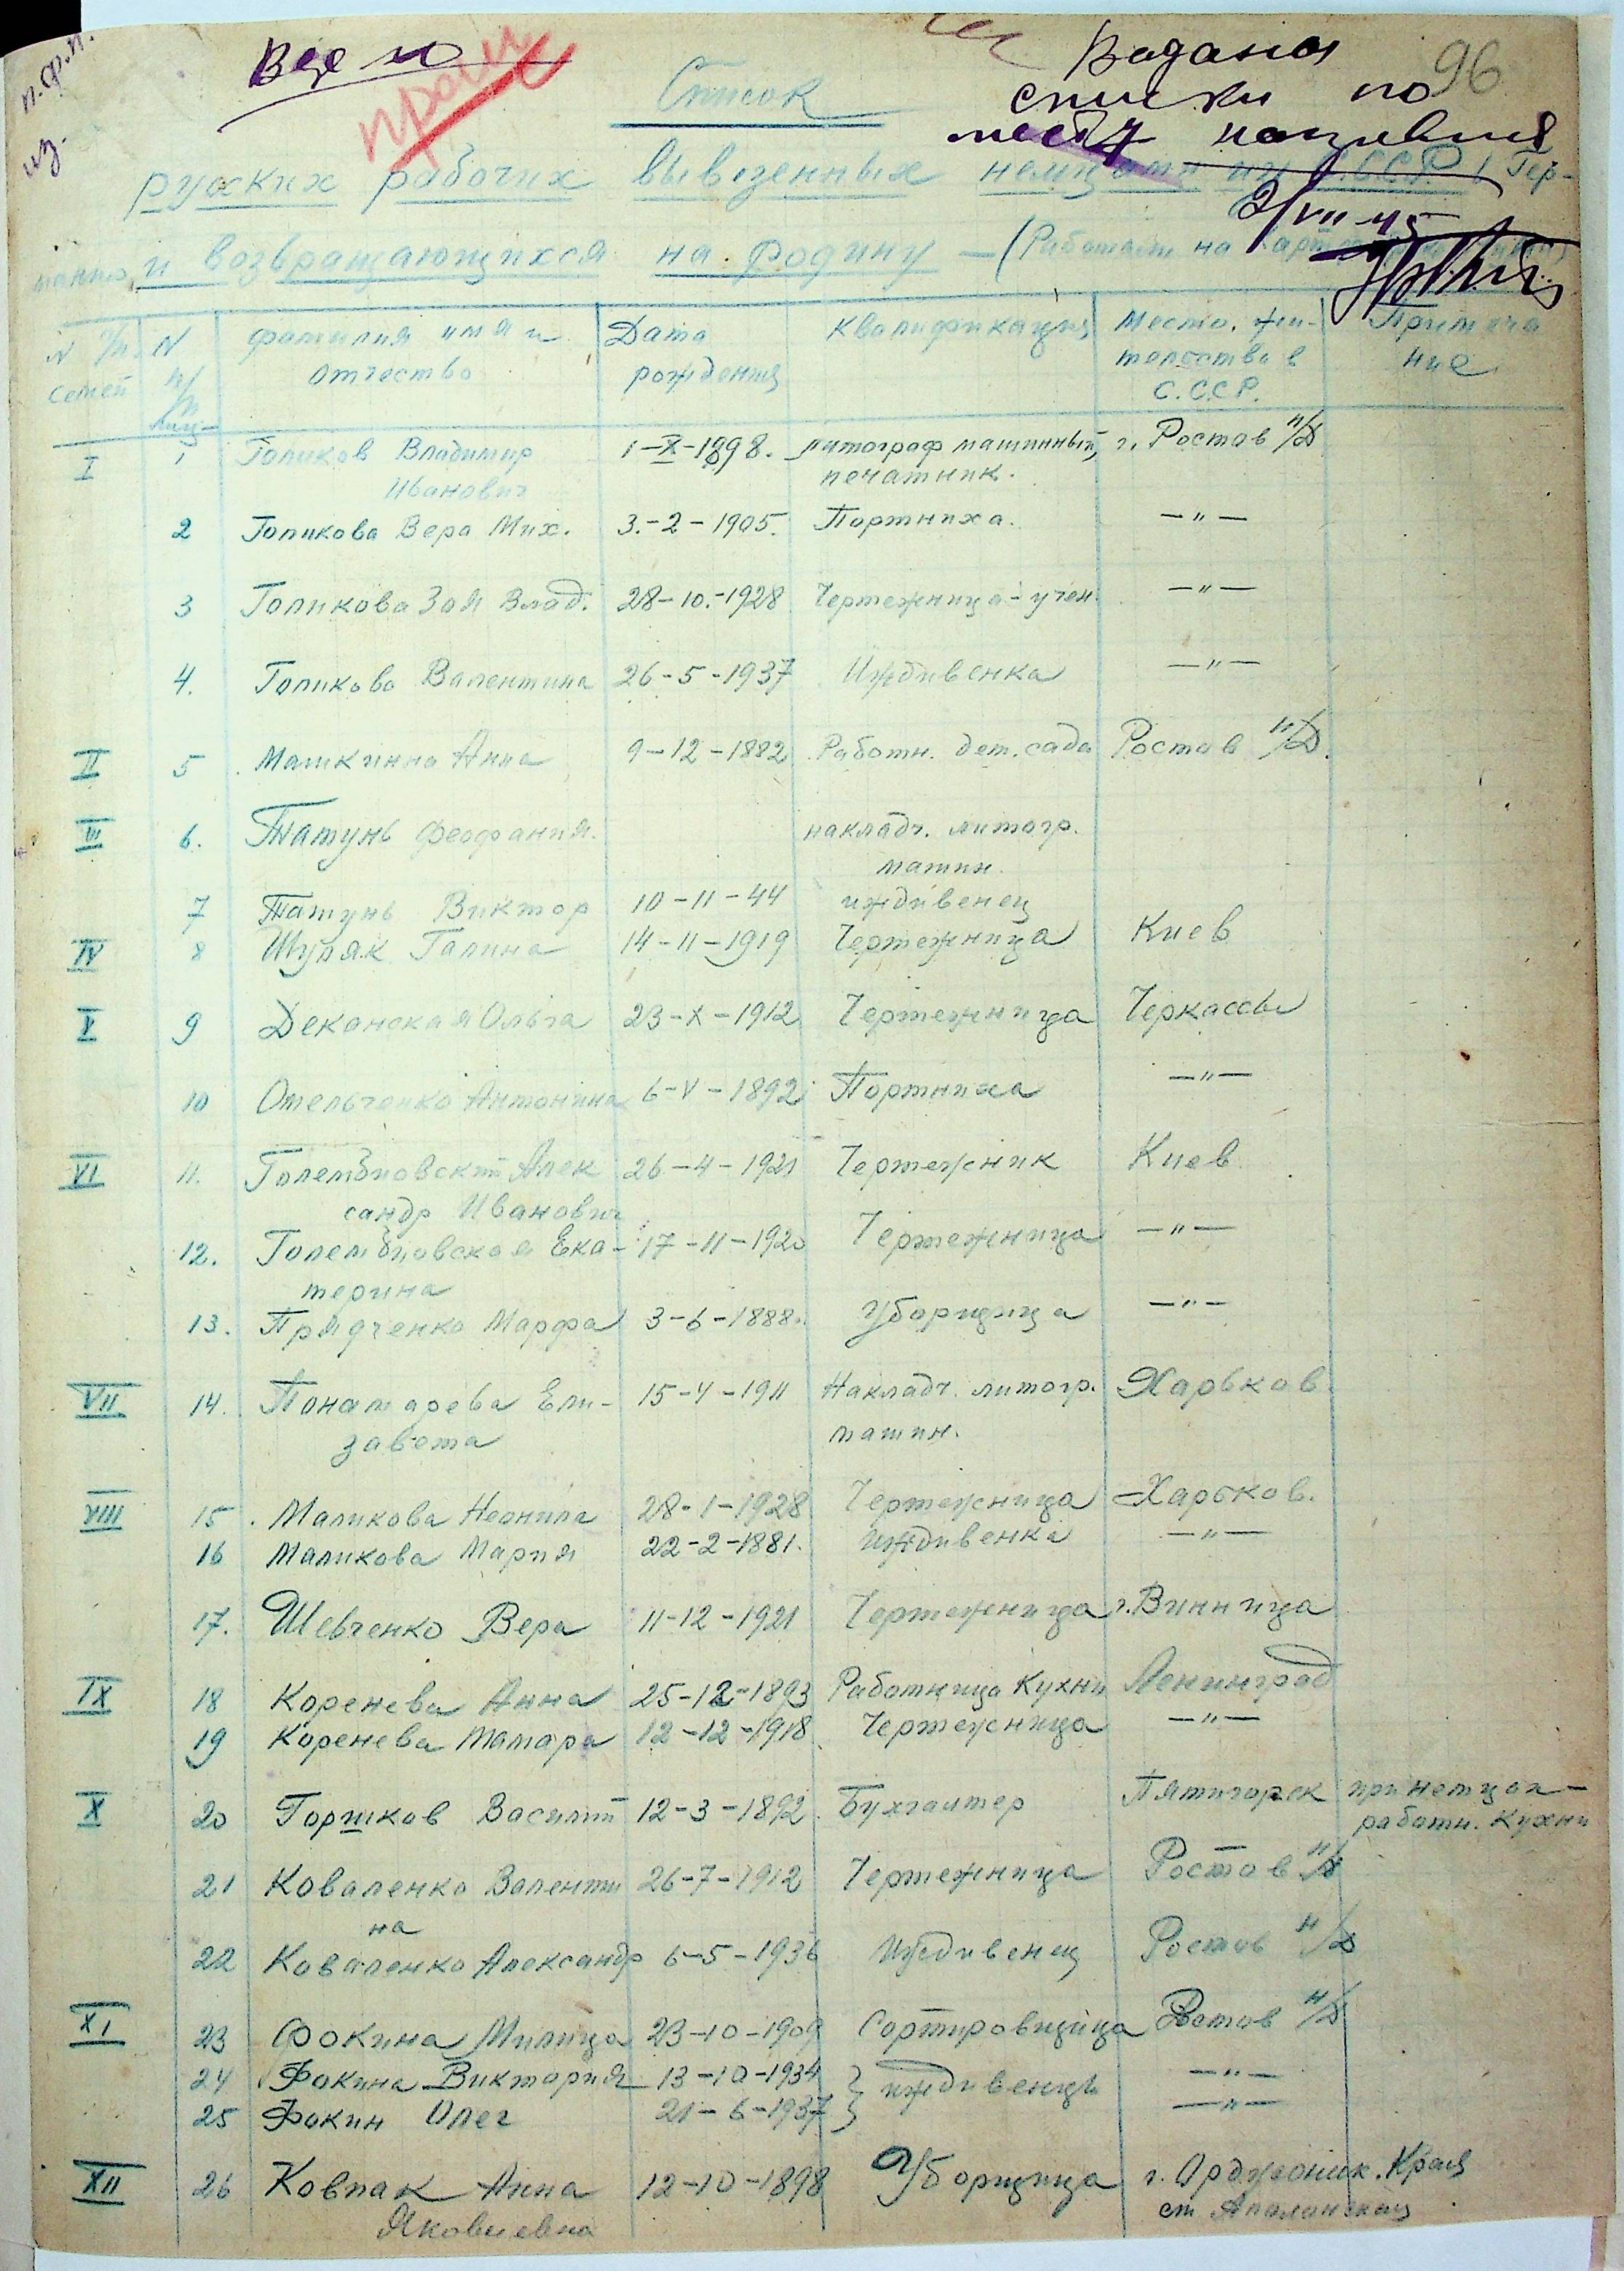 п.ф.п.
из.
Все
96
Список
списки по
месту
русских рабочих вывезенных немцами из С.С.С.Р. в Гер-
2/VII 45
манию и возвращающихся на родину — (Работали на
N п/п семей
N п/п лиц
фамилия имя и отчество
Дата рождения
Квалификация
Место жительства в С.С.С.Р.
Примечание
I 1 Голиков Владимир 1-X-1898. литограф машинный, г. Ростов н/Д
Иванович печатник.
2 Голикова Вера Мих. 3.-2-1905. Портниха. —"—
3 Голикова Зоя Влад. 28-10.-1928 Чертежница-учен. —"—
4. Голикова Валентина 26-5-1937 Иждивенка —"—
II 5 Анна 9-12-1882 Работн. дет. сада Ростов н/Д.
III 6. Татунь Феофания. накладч. литогр.
машин.
7 Татунь Виктор 10-11-44 иждивенец
IV 8 Шуляк Галина 14-11-1919 Чертежница Киев
V 9 Деканская Ольга 23-X-1912 Чертежница Черкассы
10 Омельченко Антонина 6-V-1892 Портниха —"—
VI 11. Голембиовский Алек 26-4-1921 Чертежник Киев
сандр Иванович
12. Голембиовская Ека- 17-11-1920 Чертежница —"—
терина
13. Прядченко Марфа 3-6-1888. Уборщица —"—
VII 14. Понамарева Ели- 15-4-1911 Накладч. литогр. Харьков.
завета машин.
VIII 15. Маликова Неонила 28-1-1928 Чертежница Харьков.
16 Маликова Мария 22-2-1881. Иждивенка —"—
17. Шевченко Вера 11-12-1921 Чертежница г. Винница
IX 18 Коренева Анна 25-12-1893 Работница Кухни Ленинград
19 Коренева Тамара 12-12-1918 Чертежница —"—
X 20 Горшков Василий 12-3-1892. Бухгалтер Пятигорск при немцах —
работн. Кухни
21 Коваленко Валенти 26-7-1912 Чертежница Ростов н/Д
на
22 Коваленко Александр 6-5-1936 Иждивенец Ростов н/Д
XI 23 Фокина Милица 23-10-1909 Сортировщица Ростов н/Д
24 Фокина Виктория 13-10-1934 } иждивенцы —"—
25 Фокин Олег 21-6-1937 —"—
XII 26 Ковпак Анна 12-10-1898 Уборщица г. Орджоник. Края
Яковлевна ст.